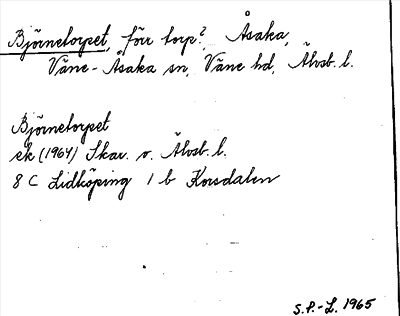 Björnetorpet, förr torp?, Åsaka,
Väne-Åsaka sn, Väne hd, Älvsb. l.
Björnetorpet
ek (1964) Skar. v. Älvsb. l.
8 C Lidköping 1 b Korsdalen
S.P.-L. 1965